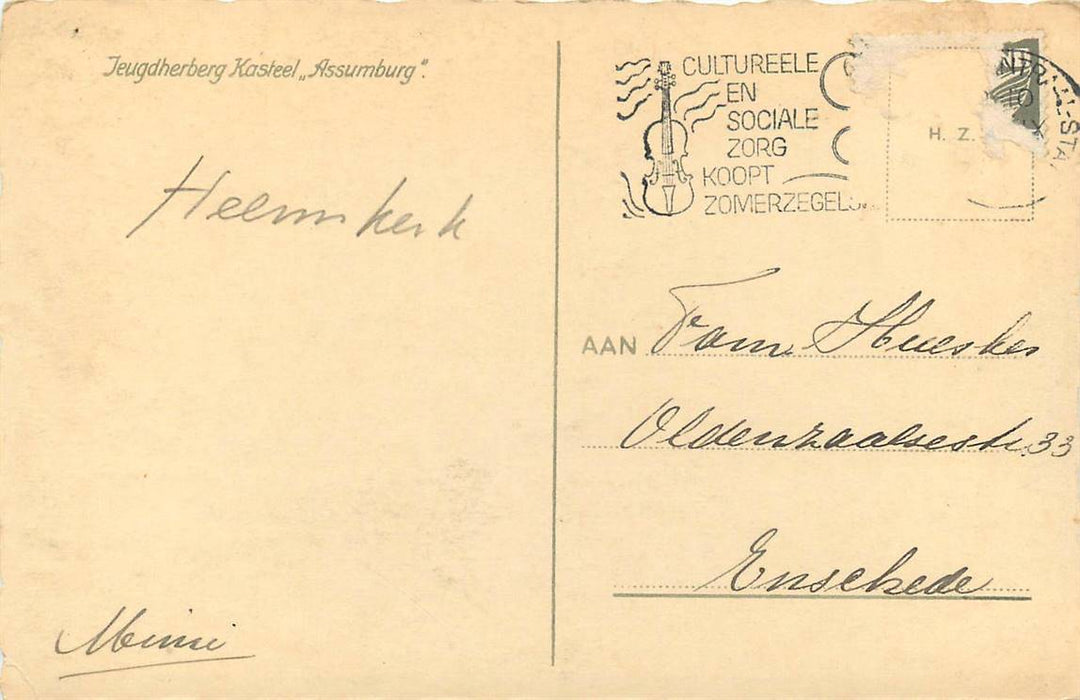 Jeugdherberg Kasteel „Assumburg".
Heemskerk
Minni
CULTUREELE
EN
SOCIALE
ZORG
KOOPT
ZOMERZEGELS
H. Z.
10
AAN Fam Hueskes
Oldenzaalsestr. 33
Enschede